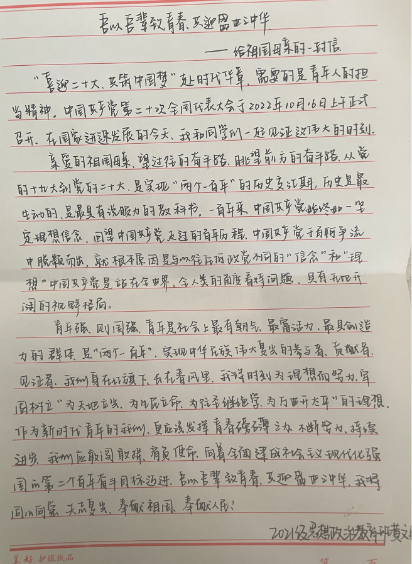 吾以吾辈致青春,共迎盛世中华
——给祖国母亲的一封信
"喜迎二十大,共筑中国梦"处时代华章,需要的是青年人的担
当精神。中国共产党第二十次全国代表大会于2022年10月16日上午正式
召开,在国家迅速发展的今天,我和同学们一起见证这伟大的时刻。
亲爱的祖国母亲,望过往的奋斗路,眺望前方的奋斗路,从党
的十九大到党的二十大,是实现"两个一百年"的历史交汇期,历史是最
生动的,是最具有说服力的教科书。一百年来,中国共产党始终如一坚
定理想信念,回望中国共产党走过的百年历程,中国共产党于百舸争流
中脱颖而出,就根本原因是与以往旧政党不同的"信念"和"理
想"中国共产党是站在全世界、全人类的角度看待问题,具有开天辟
阔的视野格局。
青年强,则国强,青年是社会上最有朝气、最富活力、最具创造
力的群体,是"两个一百年",实现中华民族伟大复兴的参与者、贡献者、
见证者。我们身在红旗下,长在春风里,我将时刻为理想而努力,牢
固树立"为天地立心,为生民立命,为往圣继绝学,为万世开太平"的理想。
作为新时代青年的我们,更应该发挥青春 之力,不断努力,持续
进步,我们应敢闯敢拼,肩负使命,向着全面建成社会主义现代化强
国的第二个百年奋斗目标迈进,吾以吾辈致青春,共迎盛世中华,我将
同 ,矢志复兴,奉献祖国,奉献人民!
2021级思想政治教育班黄文